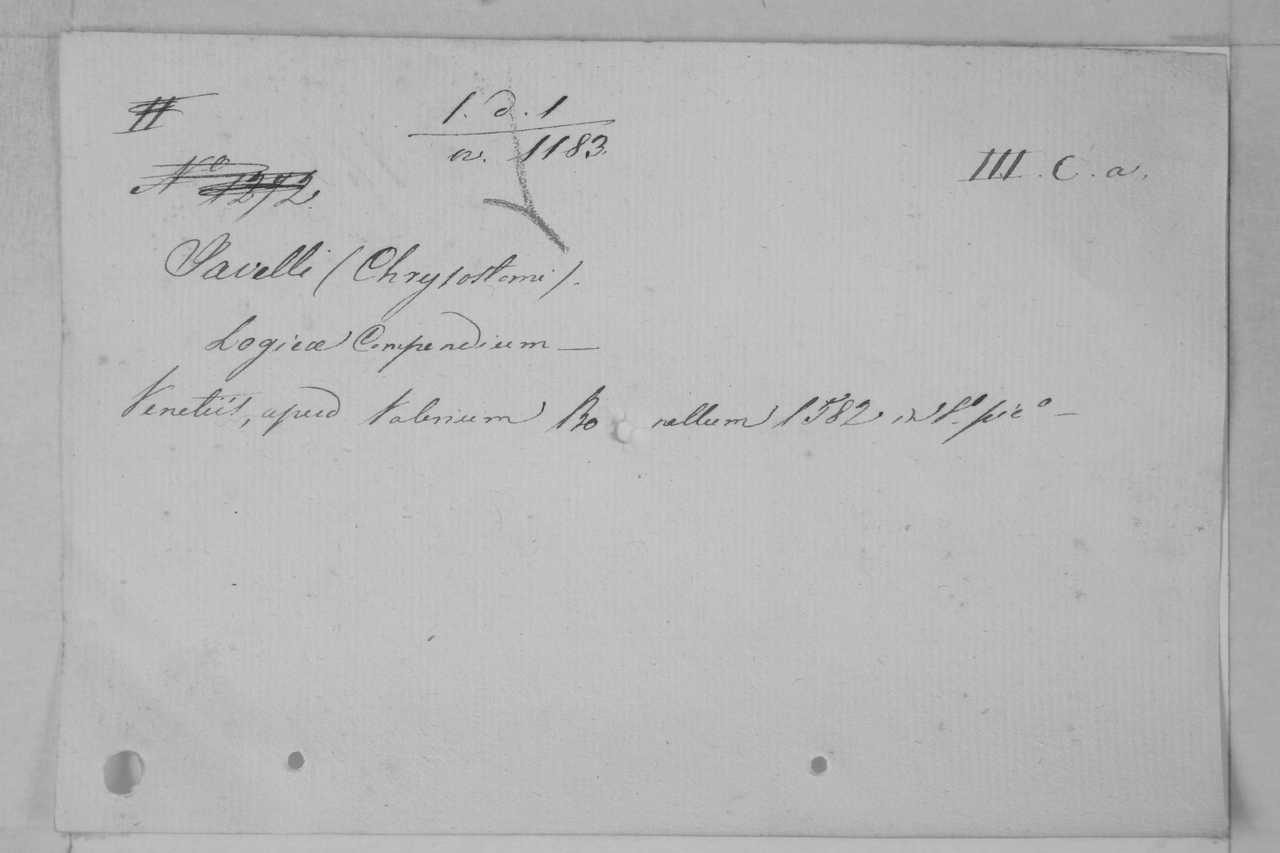 II
1. d. 1
a. 1183.
III. C. a.
No 1272.
Javelli (Chrysostomi).
Logicæ Compendium —
Venetiis, apud Valerium Bo nellum 1582 in 8.o pic.o —